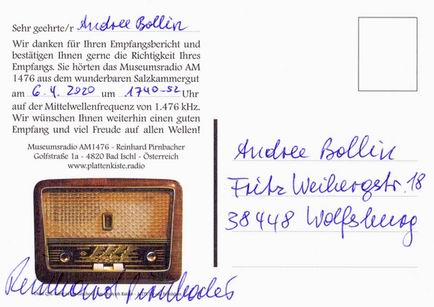 Sehr geehrte/r Andree Bollin
Wir danken für Ihren Empfangsbericht und
bestätigen Ihnen gerne die Richtigkeit Ihres
Empfangs. Sie hörten das Museumsradio AM
1476 aus dem wunderbaren Salzkammergut
am 6.4.2020 um 1740-52 Uhr
auf der Mittelwellenfrequenz von 1.476 kHz.
Wir wünschen Ihnen weiterhin einen guten
Empfang und viel Freude auf allen Wellen!
Museumsradio AM1476 - Reinhard Pirnbacher
Golfstraße 1a - 4820 Bad Ischl - Österreich
www.plattenkiste.radio
Reinhard Pirnbacher
Andree Bollin
Fritz Weibergstr. 18
38448 Wolfsburg